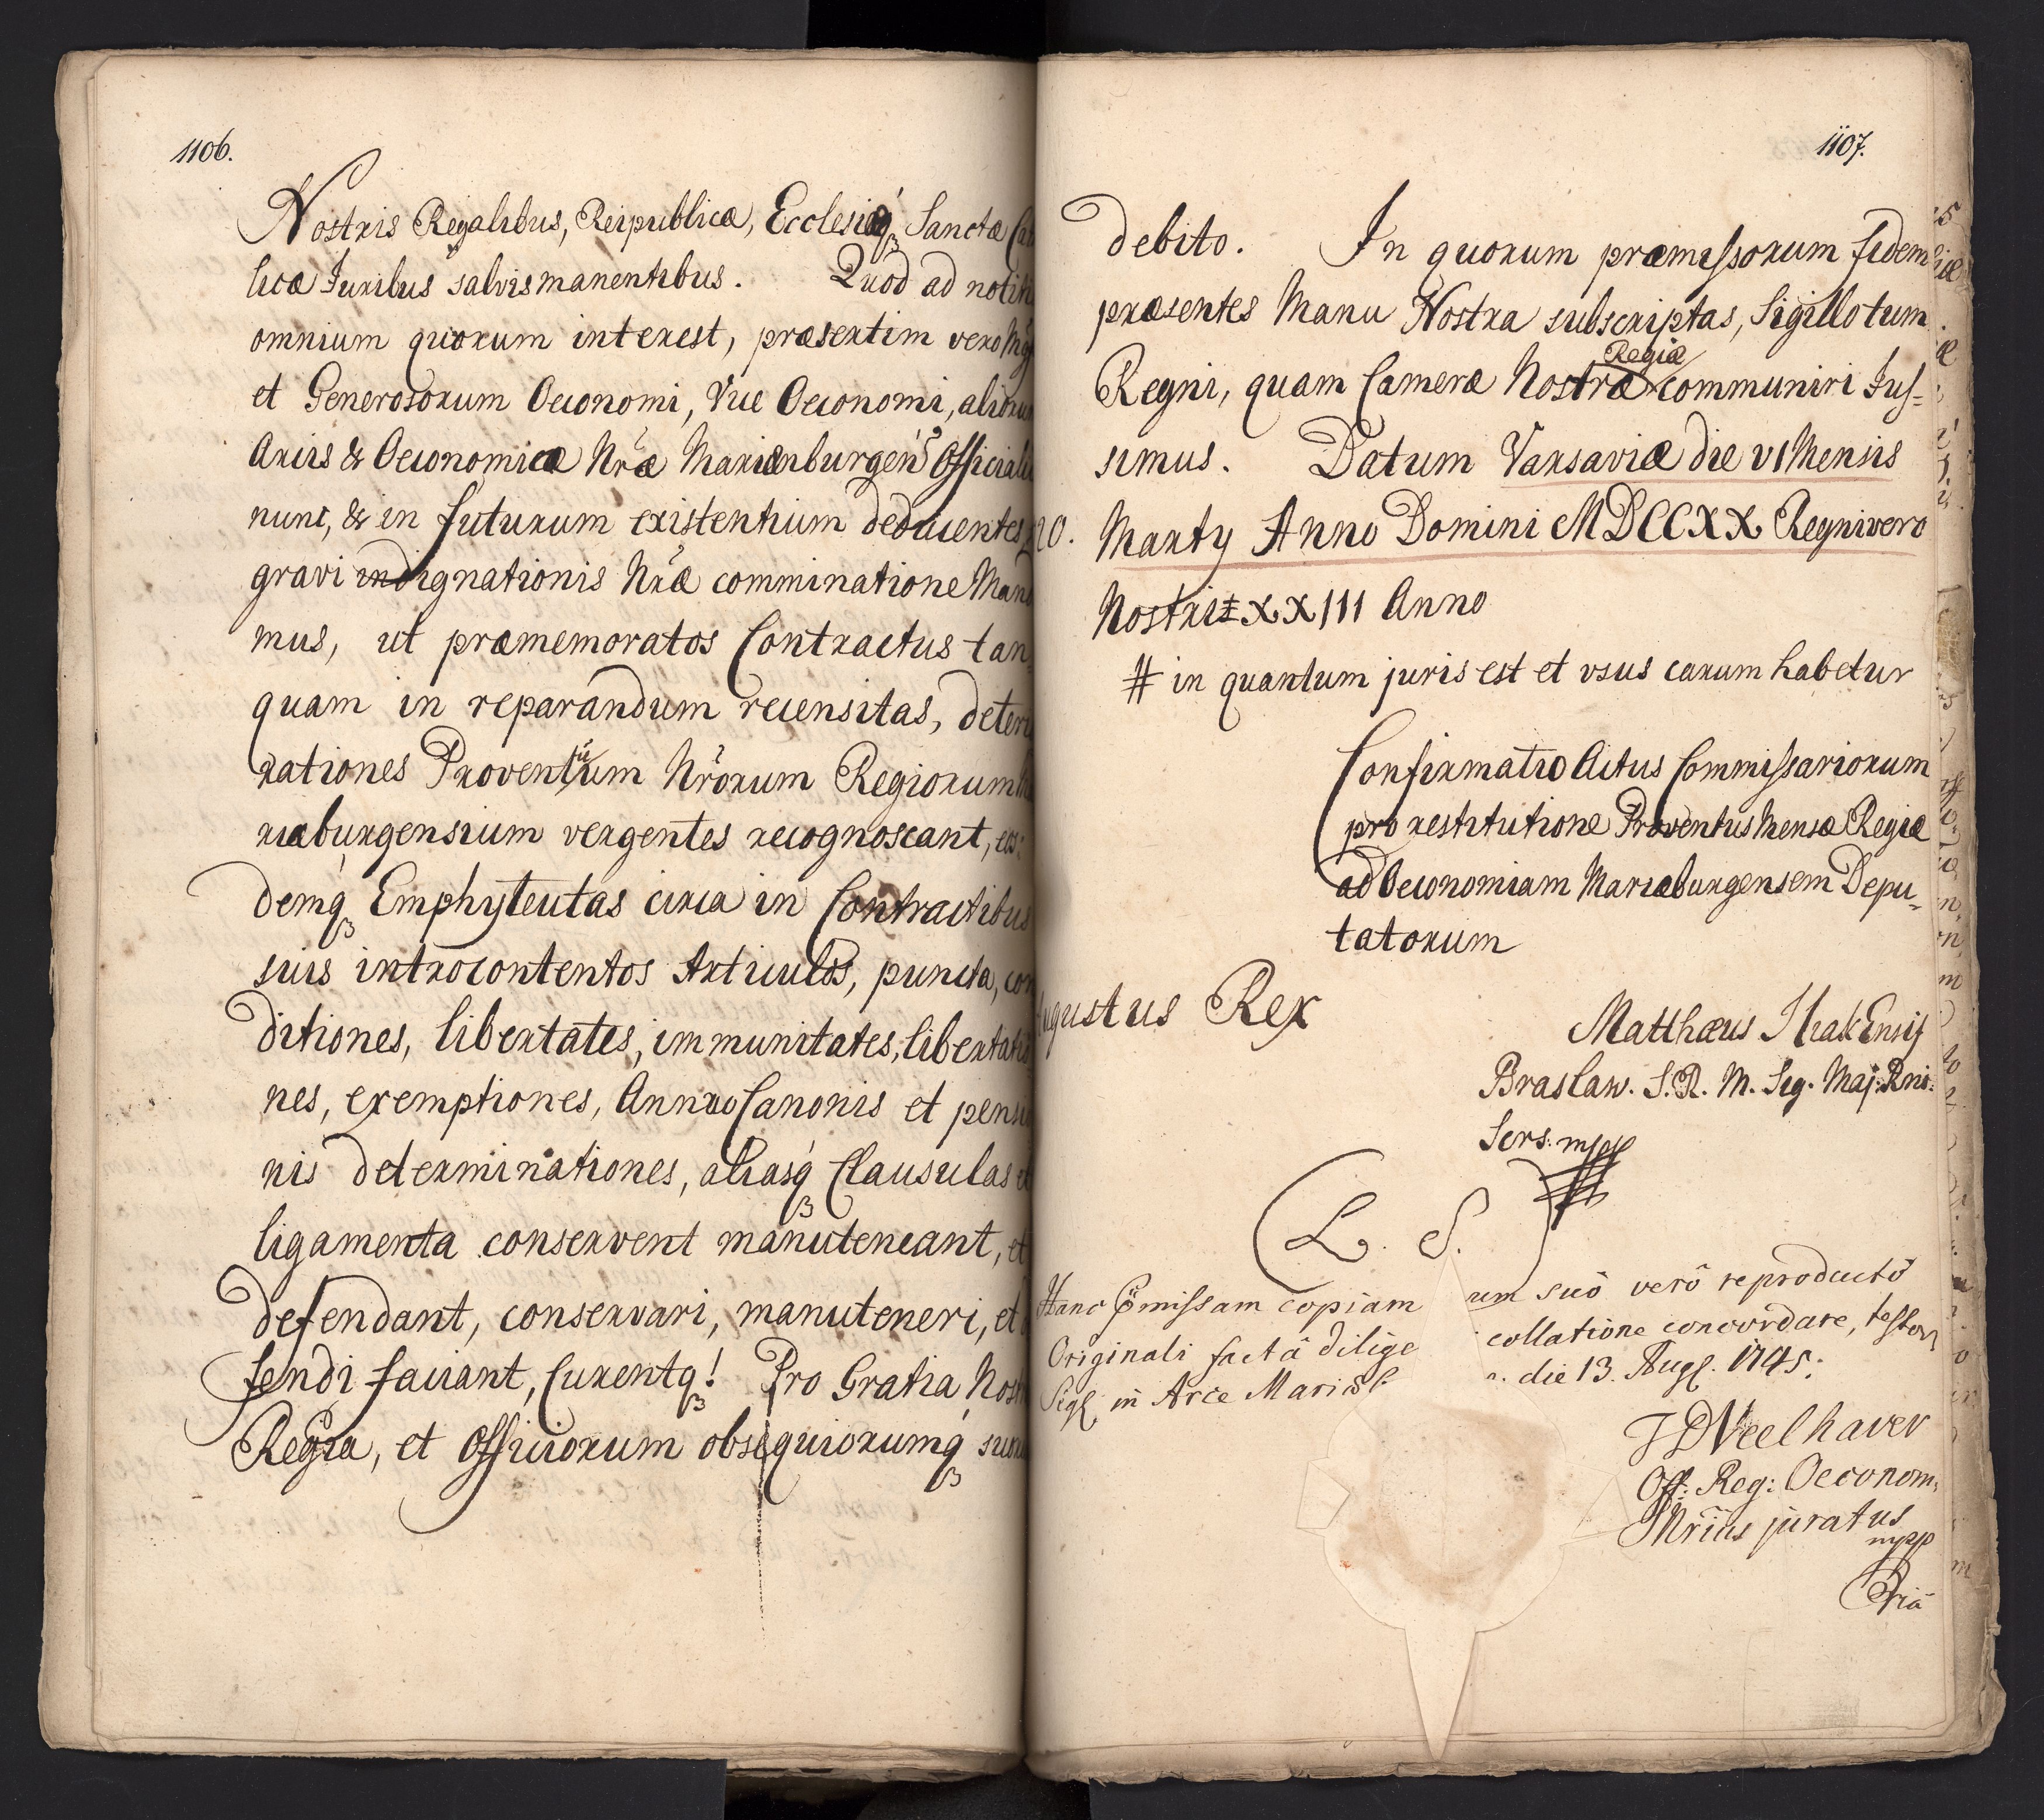 1106.
Nostris Regalibus, Reipublicæ, Ecclesiæq́ꝫ Sanctæ Ca
licæ Juribus salvis manentibus. Quod ad notiti
omnium quorum interest, præsertim vero
et Generosorum Oeconomi, Vice Oeconomi, alioru
Arcis & Oeconomiæ Nr̃æ Mariænburgen̄ Officiali
nunc, & in futurum existentium deducentes
gravi indignationis Nr̃æ comminatione Man
mus, ut præmemoratos Contractus tan
quam in reparandum recensitas, deterio
rationes Proventuum Nr̃orum Regiorum
riæburgensium vergentes recognoscant, eos:
demq́ꝫ Emphyteutas circa in Contractibus
suis introcontentos Articulos, puncta, con
ditiones, libertates, immunitates, libertatio
nes, exemptiones, Annuo Canonis et pensio
nis determinationes, aliasq́ꝫ Clausulas et
ligamenta conservent manuteneant, et
defendant, conservari, manuteneri, et
fendi faciant, Curentqꝫ! Pro Gratia Nost
Regia, et Officiorum obsequiorumq́ꝫ suoru
1107.
debito. In quorum præmissorum fidem
præsentes Manu Nostra subscriptas, Sigillo tum
Regiæ
Regni, quam Cameræ Nostræ communiri Jus=
simus. Datum Varsaviæ die VI Mensis
Marty Anno Domini MDCCXX Regni vero
Nostri # XXIII Anno
# in quantum juris est et usus earum habetur
Confirmatio Actus Commissariorum
pro restitutione Proventus Mensæ Regiæ
ad Oeconomiam Mariæburgensem Depu=
tatorum
ugustus Rex
Matthæus
Braslaw. S. R. M. Sig. Maj. Rni:
Secrs: mpp
L. S.
Hanc copiam um suö verö reproductö
Originali factâ dilige collatione concordare, testor
Sigl. in Arce Mariæb die 13. Augl. 1745.
J D Veelhaver
Off: Reg: Oeconom:
Nrius juratus
mpp